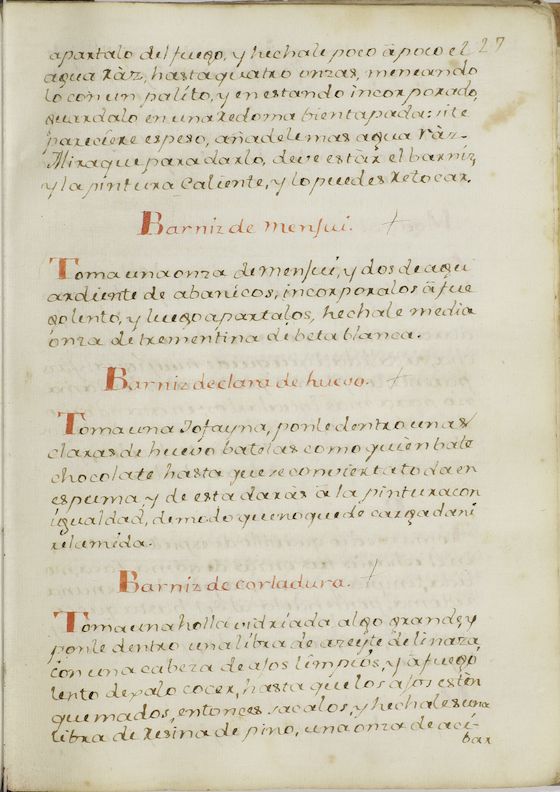 227
apartalo del fuego, y hechale poco â poco el
agua Ràz, hasta quatro onzas, meneando
lo con un palito, y en estando incorporado,
guardalo en una redoma bien tapada: si te
pareciere espeso, añadele mas agua Ràz-
Mira que para darlo, deve estàr el barniz,
y la pintura Caliente, y lo puedes Retocar.
Barniz de Menjui.
Toma una onza de Menjui, y dos de agu
ardiente de abanicos, incorporalos â fue
go lento, y luego apartalos, hechale media
onza de trementina de beta blanca.
Barniz de clara de huevo.
Toma una Jofayna, ponle dentro unas
claras de huevo batelas como quien bate
chocolate hasta que se convierta toda en
espuma y de esta daràs â la pintura con
igualdad, de modo que no quede cargada ni
relamida.
Barniz de corladura.
Toma una holla vidriada algo grande, y
ponle dentro una libra de azeyte de linaza,
con una cabeza de ajos limpios, y â fuego
lento dexalo cocer, hasta que los ajos estèn
quemados, entonces sacalos, y hechale una
libra de Resina de pino, una onza de aci-
bar